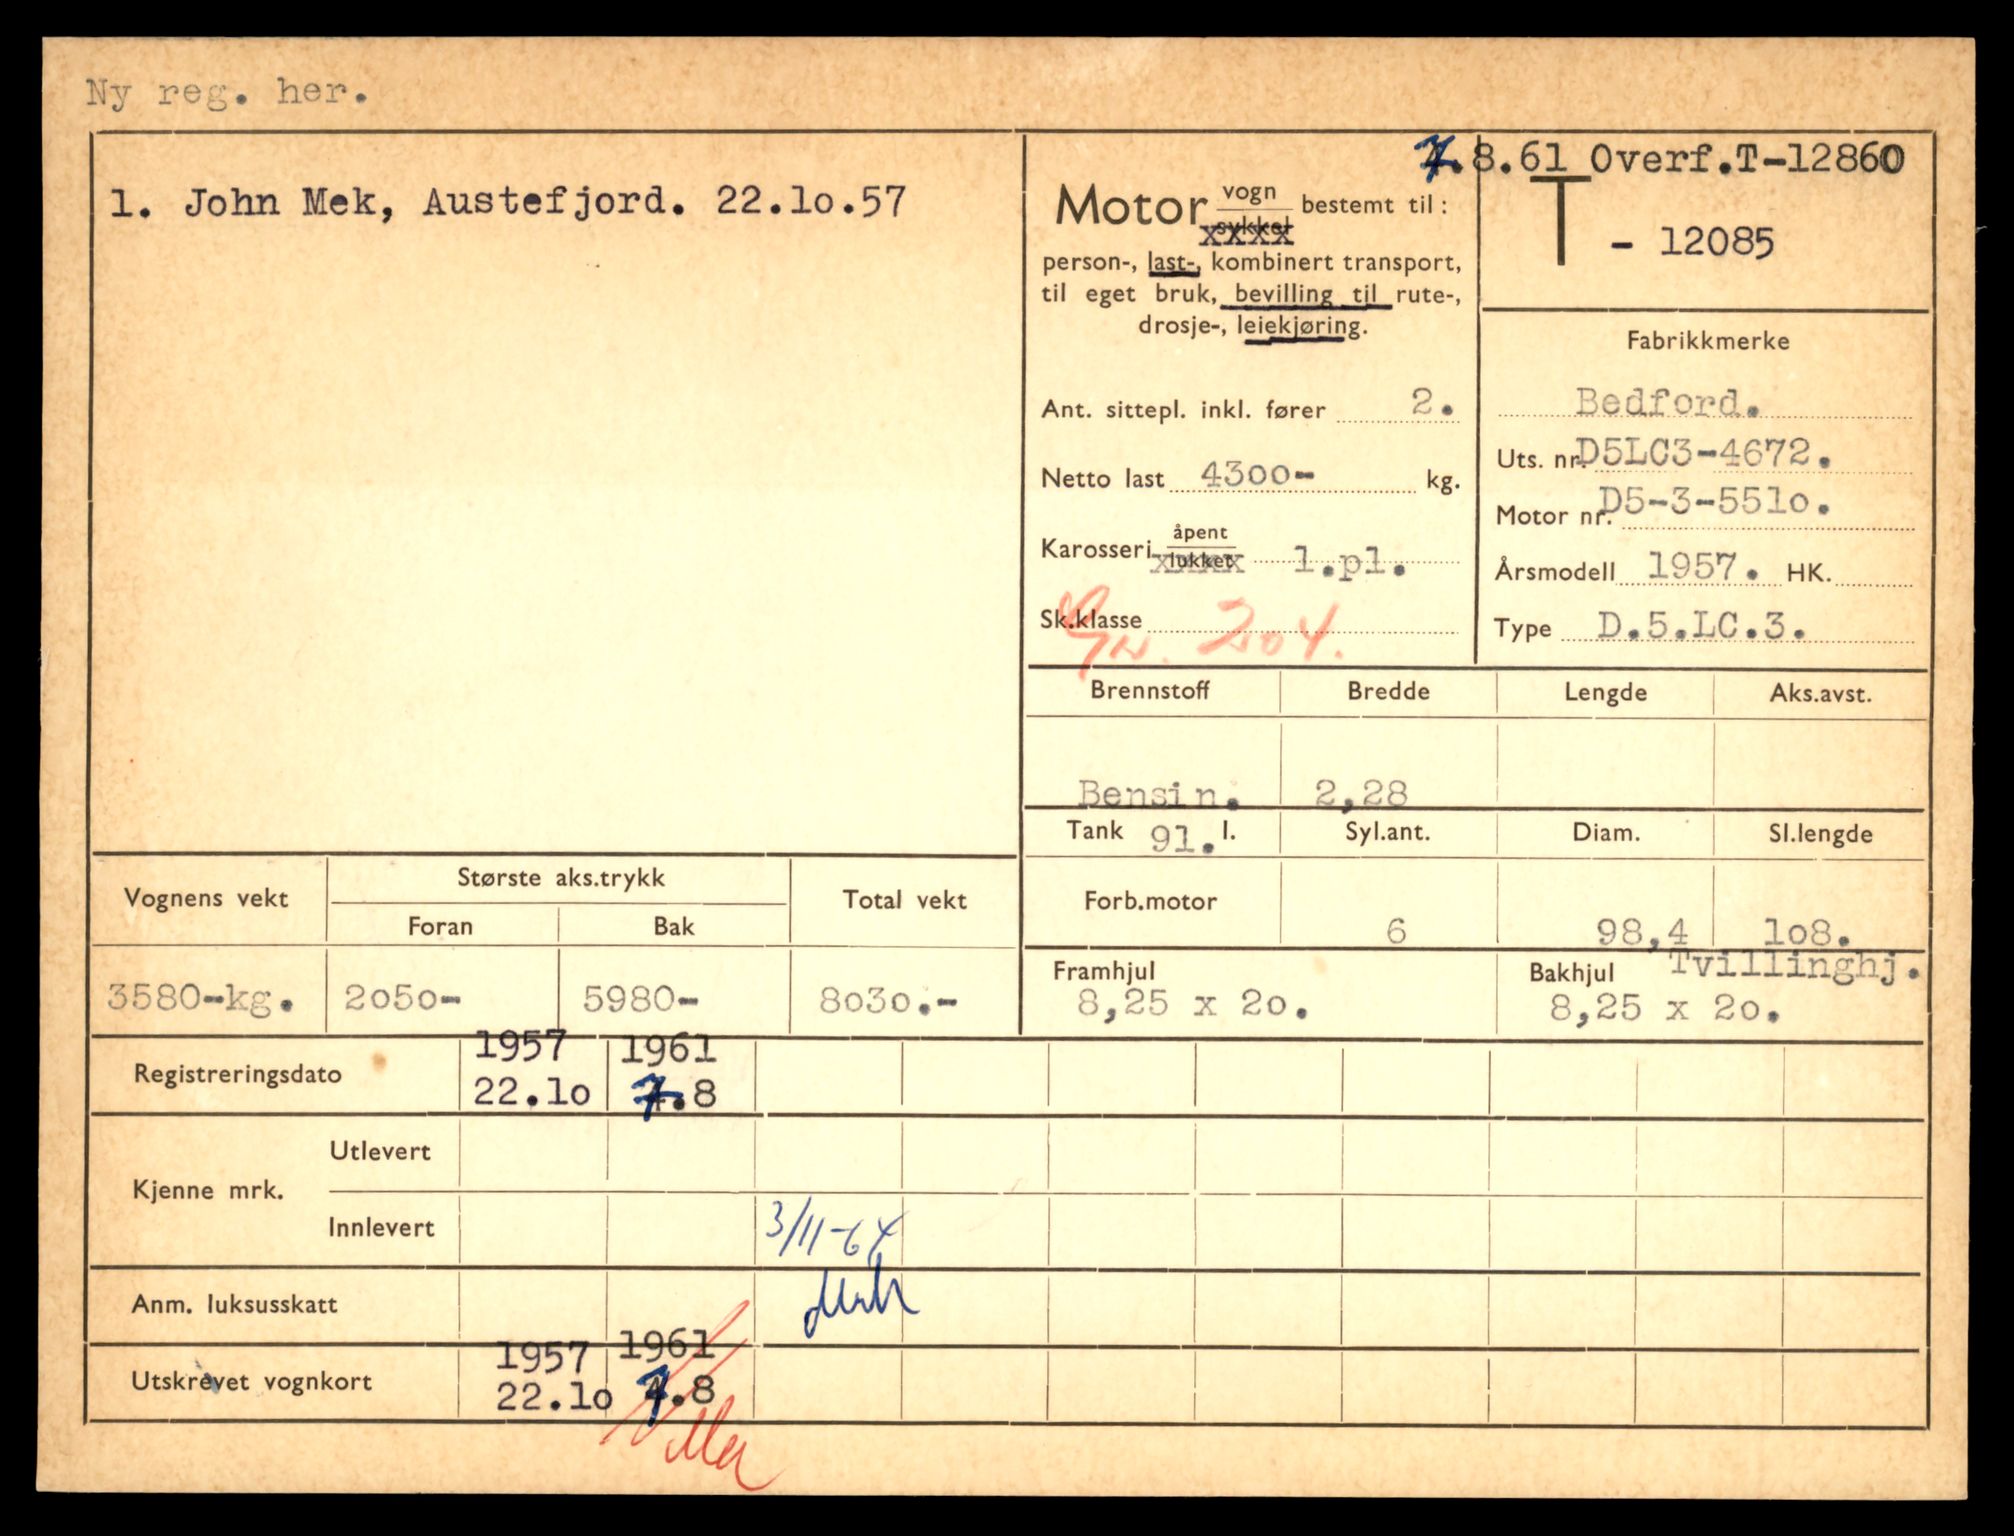 Ny reg. her.
1. John Mek, Austefjord. 22.lo.57
7.8.61 Overf.T-12860
Motor vogn
sykkel bestemt til:
person-, last-, kombinert transport,
til eget bruk, bevilling til rute-,
drosje-, leiekjøring.
T - 12085
Ant. sittepl. inkl. fører 2.
Netto last 4300- kg.
Karosseri åpent
lukket l.pl.
Sk.klasse Gn. 204.
Fabrikkmerke
Bedford.
Uts. nr. D5LC3-4672.
Motor nr. D5-3-551o.
Årsmodell 1957. HK.
Type D.5.LC.3.
Brennstoff Bredde Lengde Aks.avst.
Bensin. 2,28
Tank 91. l. Syl.ant. Diam. Sl.lengde
Forb.motor 6 98,4 1o8.
Framhjul Bakhjul Tvillinghj.
8,25 x 2o. 8,25 x 2o.
Vognens vekt Største aks.trykk Total vekt
Foran Bak
3580-kg. 2050- 5980- 8030.-
Registreringsdato 1957 1961
22.lo 7.8
Kjenne mrk. Utlevert
Innlevert 3/11-64
Anm. luksusskatt
Utskrevet vognkort 1957 1961
22.lo 7.8